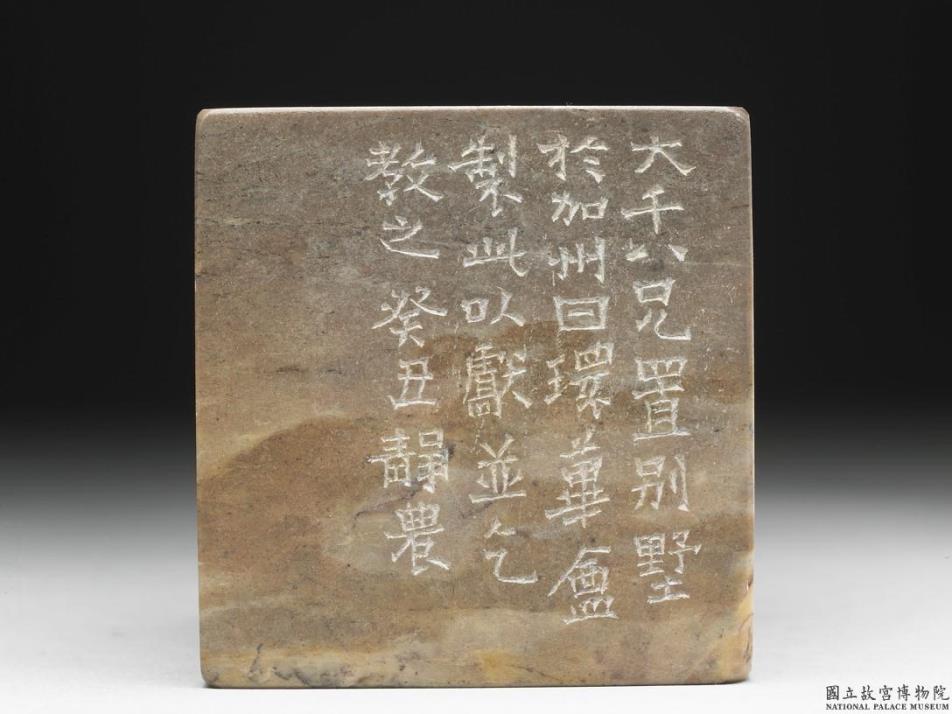 大千八兄置别墅
於加州曰環蓽盦
製此以獻並乞
教之 癸丑 靜農
國立故宮博物院
NATIONAL PALACE MUSEUM